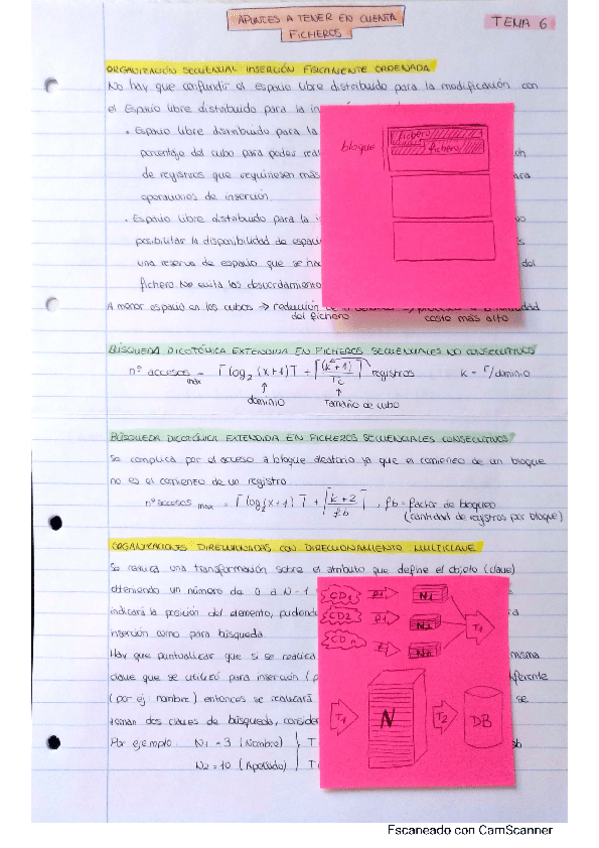 APUNTES A TENER EN CUENTA
FICHEROS
TEMA 6
ORGANIZACIÓN SECUENCIAL INSERCIÓN FÍSICAMENTE ORDENADA
No hay que confundir el espacio libre distribuido para la modificación con
el Espacio libre distribuido para la
• Espacio libre distribuido para la
porcentaje del cubo para poder
de registros que requiriesen más
operaciones de inserción.
• Espacio libre distribuido para la
posibilitar la disponibilidad de
una reserva de espacio que se
del
fichero. No evita los desbordamientos
bloque
fichero
fichero
A menor espacio en los cubos →
del fichero
coste más alto
BÚSQUEDA DICOTÓMICA EXTENDIDA EN FICHEROS SECUENCIALES NO CONSECUTIVOS
nº accesos max = ⌈log2 (x+1)⌉ + ⌈(k+1)/Tc⌉ registros k = r/dominio
dominio
Tamaño de cubo
BÚSQUEDA DICOTÓMICA EXTENDIDA EN FICHEROS SECUENCIALES CONSECUTIVOS
Se complica por el acceso a bloque aleatorio ya que el comienzo de un bloque
no es el comienzo de un registro.
nº accesos max = ⌈log2(x+1)⌉ + ⌈k+2/fb⌉, fb = factor de bloqueo
(cantidad de registros por bloque)
ORGANIZACIONES DIRECCIONADAS CON DIRECCIONAMIENTO MULTICLAVE
Se realiza una transformación sobre el atributo que define el objeto (clave)
obteniendo un número de 0 a N-1
indicará la posición del elemento, pudiendo
inserción como para búsqueda.
Hay que puntualizar que si se realiza
misma
clave que se utilizó para inserción
(por ej. nombre) entonces se realizará
se
toman dos claves de búsqueda,
Por ejemplo: N1 = 3 (Nombre)
N2 = 10 (Apellido)
CD1
N1
CD2
CDn
T1
T1
N
T2
DB
Escaneado con CamScanner